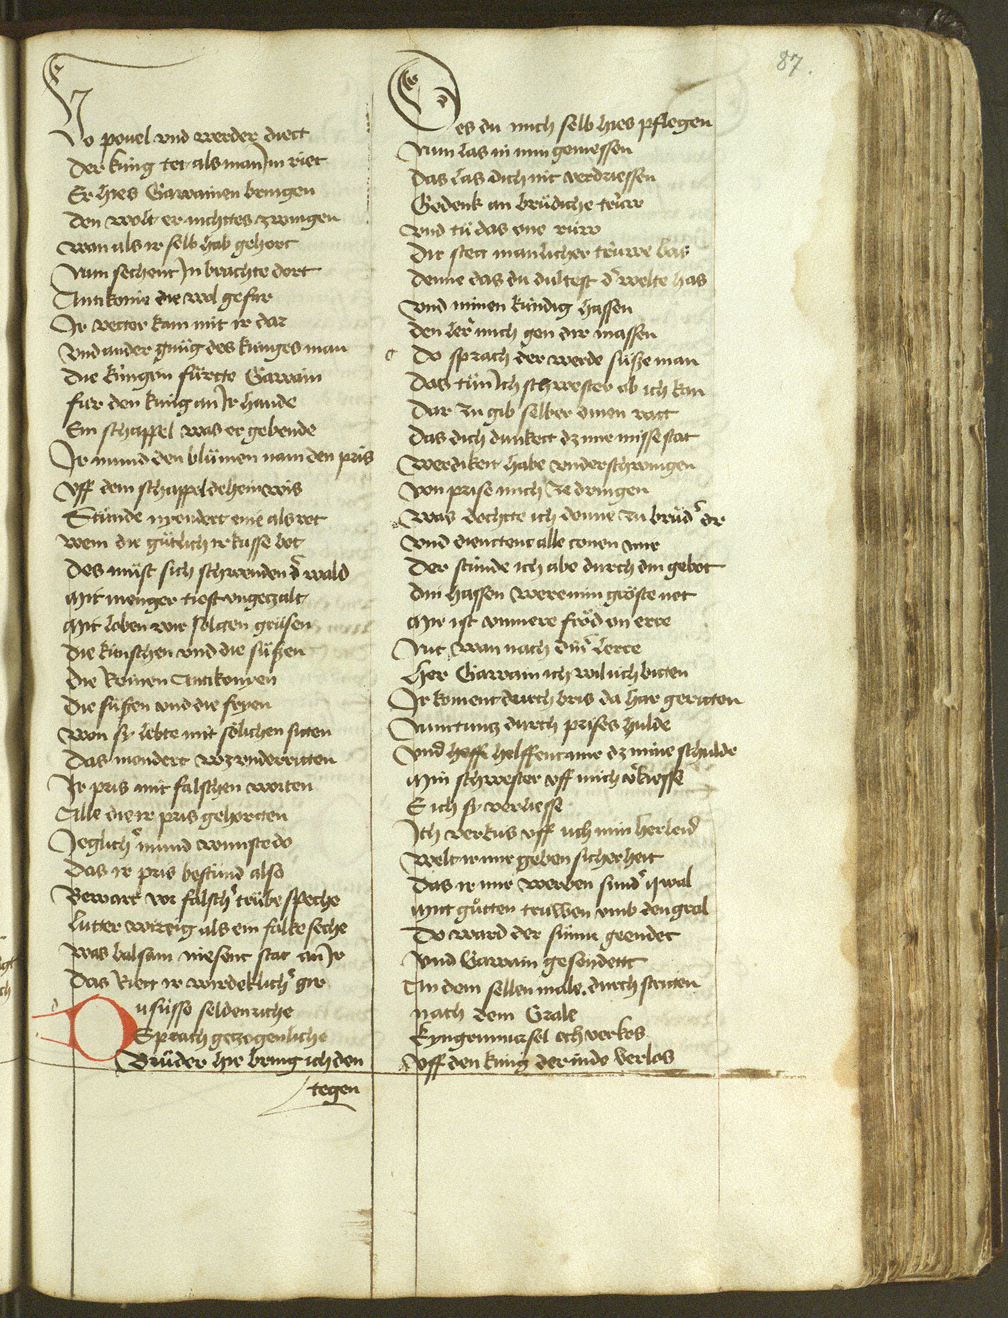 87.
No povel vnd werder diett
Der kúng tet als man Jn riet
Er hies Gawainen bringen
Den wolt er nichttes zwingen
Wan als ir selb hab gehort
Nun sechent Jn brachte dort
Antikonie die wol gefar
Jr vetter kam mit ir dar
Vnd ander gnúg des kúnges man
Die kúngin fúrtte Gawain
Fur den kúng an Jr hande
Ein schappel was er gebende
Jr mund den blúmen nam den pris
Vff dem schappel deheinwis
Stúnde niendert eine als rot
Wem die gútlich ir kusse bot
Des múst sich schwenden d' wald
Mit menger tiost vngezalt
Mit loben wir sollen grúsen
Die kúnschen vnd die súßen
Die Reinen Antikonien
Die súßen vnd die fryen
Won sy lebte mit sólichen sitten
Das niendert wz vnderritten
Jr pris mit falschen worten
Alle die ir pris gehortten
Jeglich' mund wunste do
Das ir pris bestúnd also
Bewart vor falsch' trúbe speche
Lutter wittig als ein falke seche
Was balsam niesent stat an Jr
Das Riett ir wirdeklich' gir
Du sússe seldenriche
Sprach gezogenliche
Brúder hie bring ich den
tegen
Des du mich selb hies pflegen
Nun las in min geniessen
Das las dich nit verdriessen
Gedenk an brúdiche trúw
Vnd tú das one rúw
Dir stett manlicher trúwe bas
Denne das du dultest d' welte has
Vnd minen kúndig hassen
Den ler mich gen dir massen
Do sprach der werde súße man
Das tún Jch schwester ob ich kan
Dar zu gib selber dinen ratt
Das dich dunkett dz mine missetat
Werdikeit habe vnderschwingen
Von prise mich ze dringen
Was dochtte ich denne zu brúd' dir
Vnd dienettent alle cronen mir
Der stúnde ich abe durch din gebot
Din hassen were min gróste not
Mir ist vnmere fród vn erre
Nit wan nach din' lerre
Her Gawain ich wil úch bitten
Jr koment durch bris da har geritten
Nun tunz durch prises hulde
Vnd helffent mir dz mine schulde
Min schwester vff mich v'kiesse
E ich sy verliesse
Jch verkús vff úch min herleid
Welt ir mir geben sicherheit
Das ir mir werben sund' twal
Mitt gútten truwen vmb den gral
Do ward der súnn geendet
Vnd Gawain gesendett
An dem sellen male durch stritten
Nach dem Grale
Kyngrimursel och verkos
Vff den kúng der in do verlos